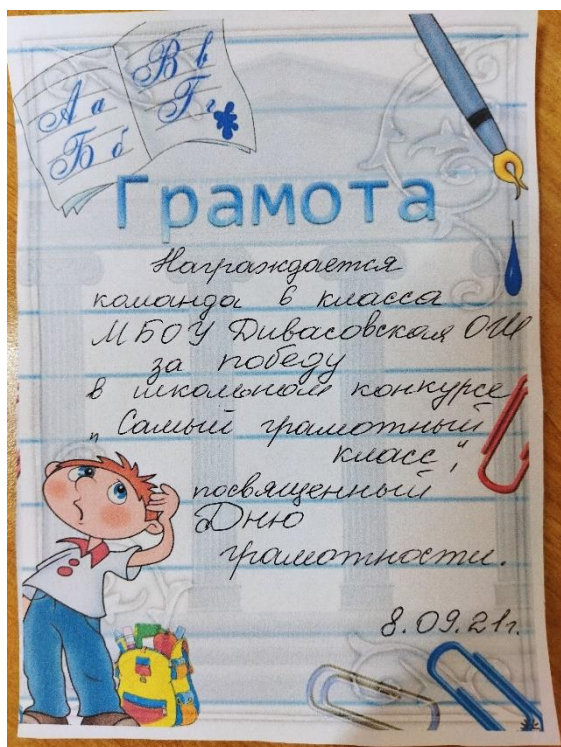 А а
Б б
В в
Г г
Грамота
Награждается
команда 6 класса
МБОУ Дивасовская ОШ
за победу
в школьном конкурсе
„Самый грамотный
класс",
посвященный
Дню
грамотности.
8.09.21г.